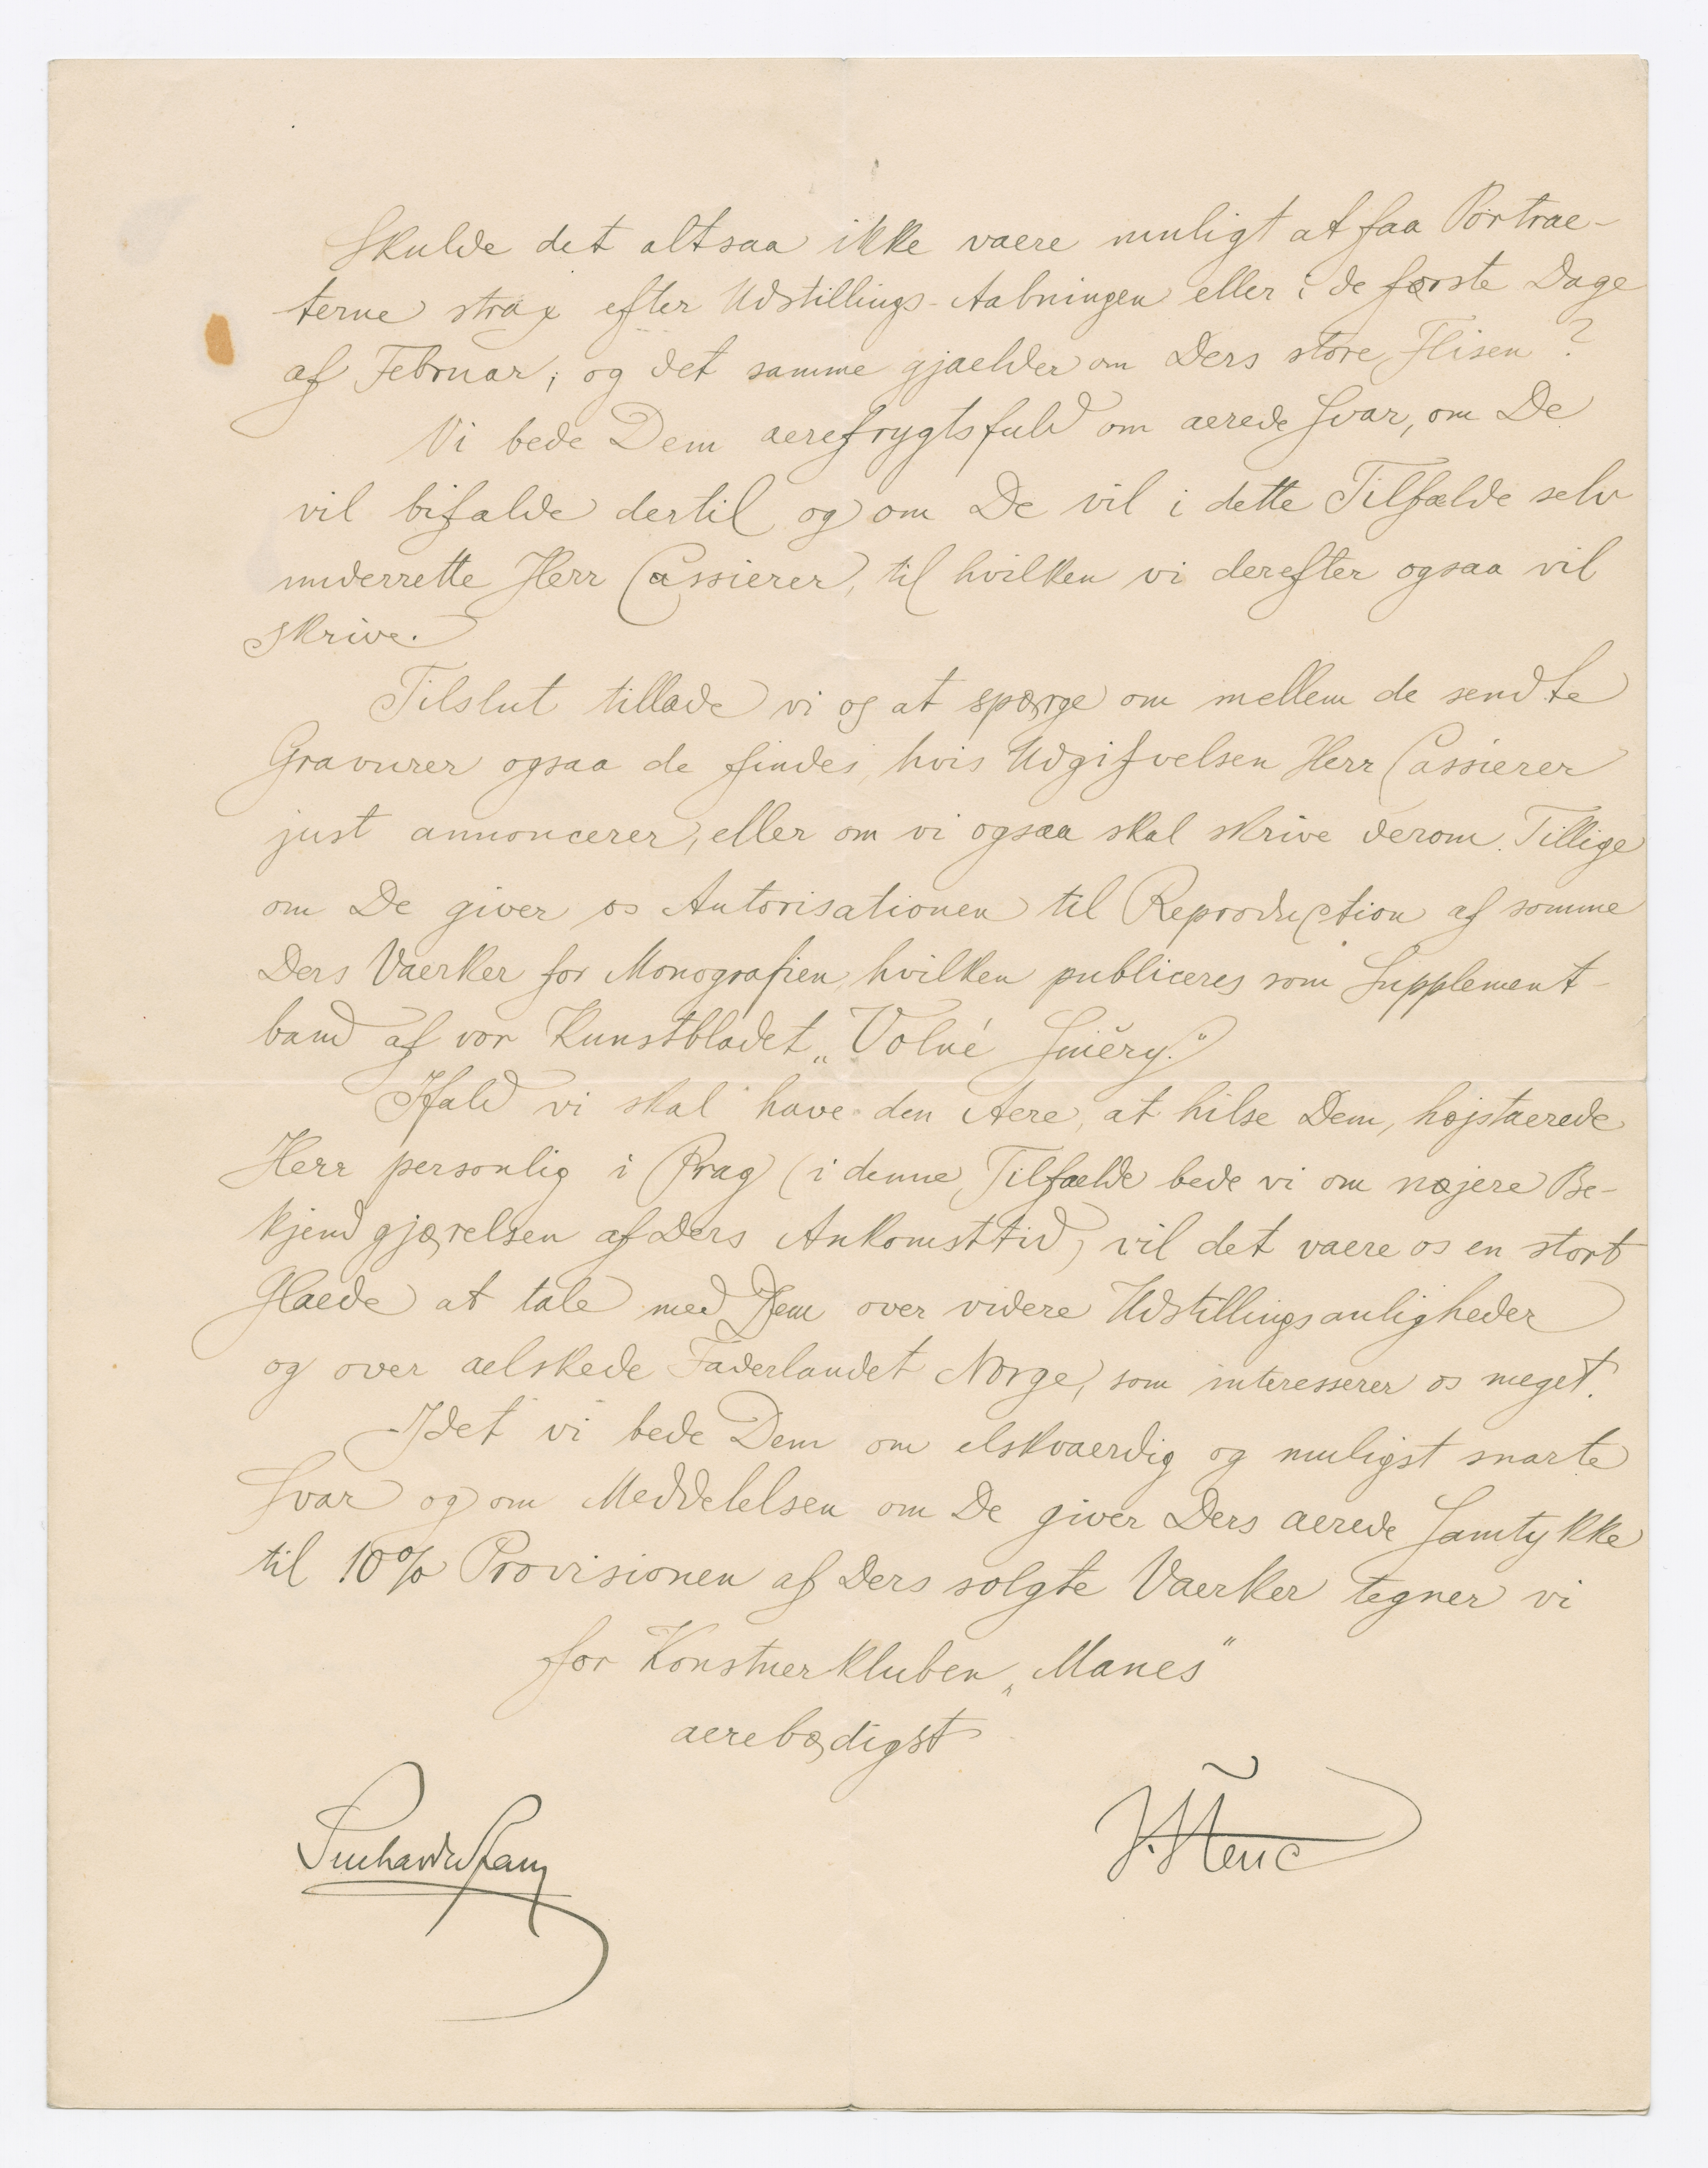 Skulde det altsaa ikke vaere muligt at faa Portrae-
terne strax efter Udstillings-Aabningen eller i de første Dage
af Februar, og det samme gjaelder om Ders store Flisen?
Vi bede Dem aerefrygtsfuld om aerede Svar, om De
vil bifalde dertil og om De vil i dette Tilfaelde selv
underrette Herr Cassierer, til hvilken vi derefter ogsaa vil
skrive.
Tilslut tillade vi os at spørge om mellem de sendte
Gravurer ogsaa de findes, hvis Udgifvelsen Herr Cassierer
just annoncerer, eller om vi ogsaa skal skrive derom. Tillige
om De giver os Autorisationen til Reproduction af somme
Ders Vaerker for Monografien, hvilken publiceres som Supplement-
band af vor Kunstbladet „Volné Směry."
Ifald vi skal have den Aere, at hilse Dem, højstaerede
Herr personlig i Prag (i denne Tilfaelde bede vi om nøjere Be-
kjendgjørelsen af Ders Ankomsttid) vil det vaere os en stort
Glaede at tale med Dem over videre Udstillingsanligheder
og over aelskede Faderlandet Norge, som interesserer os meget.
Idet vi bede Dem om elskvaerdig og muligst snarte
Svar og om Meddelelsen om De giver Ders aerede Samtykke
til 10% Provisionen af Ders solgte Vaerker tegner vi
for Konstnerkluben „Manes"
aerebødigst
J. Štenc